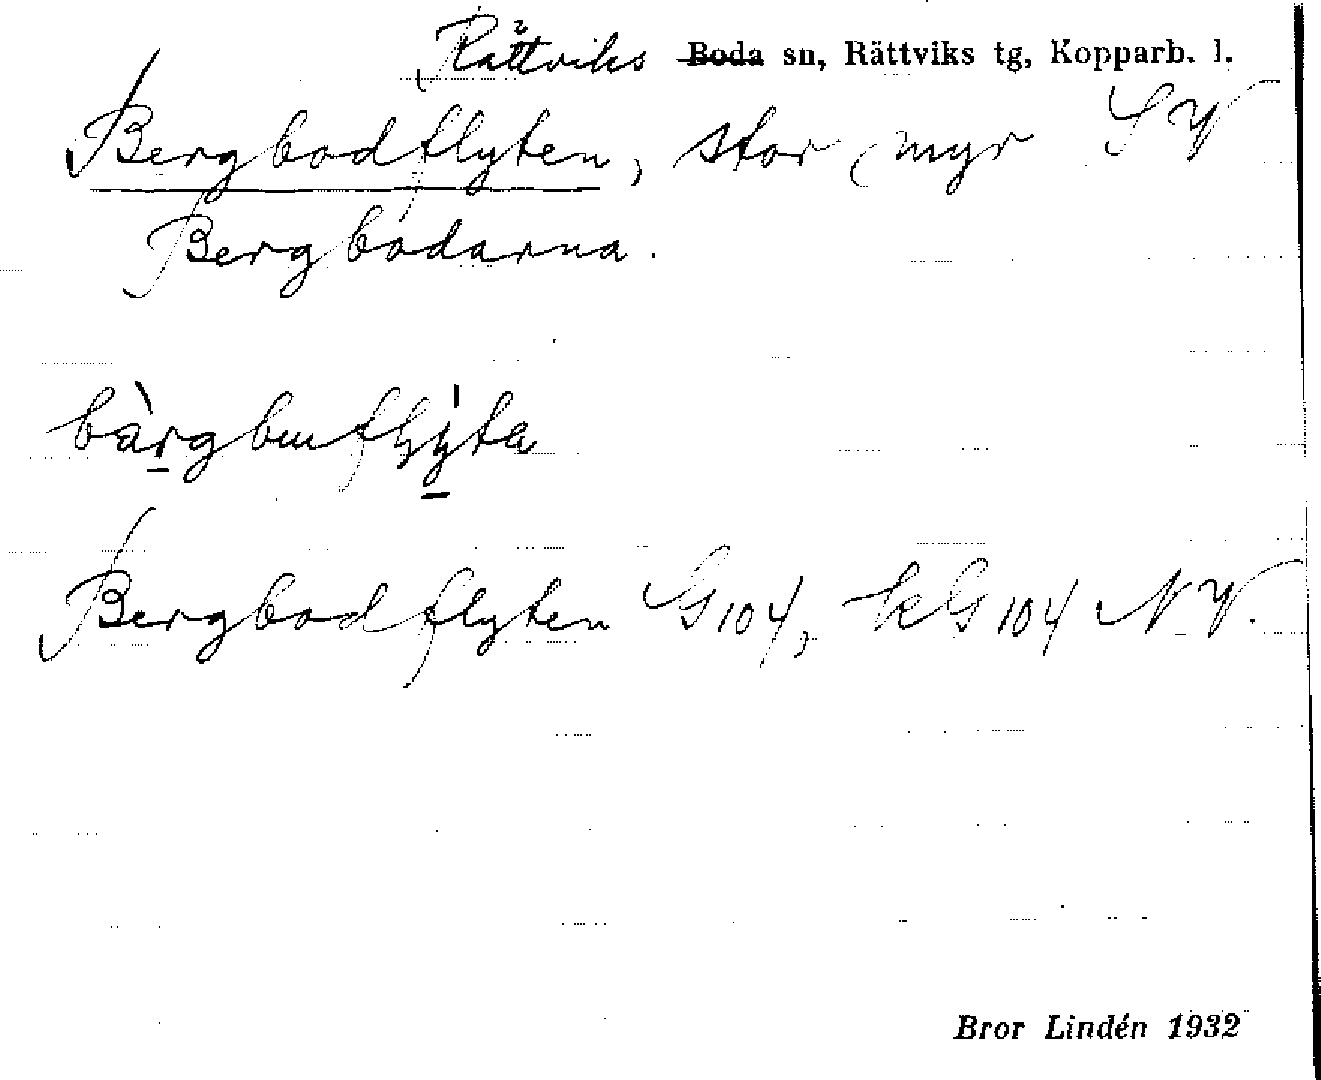 Rättviks ~~Boda~~ sn, Rättviks tg, Kopparb. l.
Bergbodflyten, stor myr SV
Bergbodarna.
Bergbodflyten G104, kG104 NV.
Bror Lindén 1932